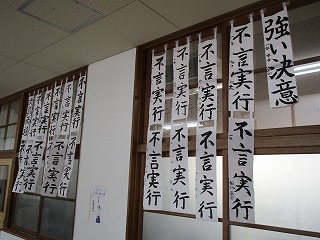 強い決意
不言実行
不言実行
不言実行
不言実行
不言実行
不言実行
不言実行
不言実行
不言実行
不言実行
不言実行
不言実行
不言実行
不言実行